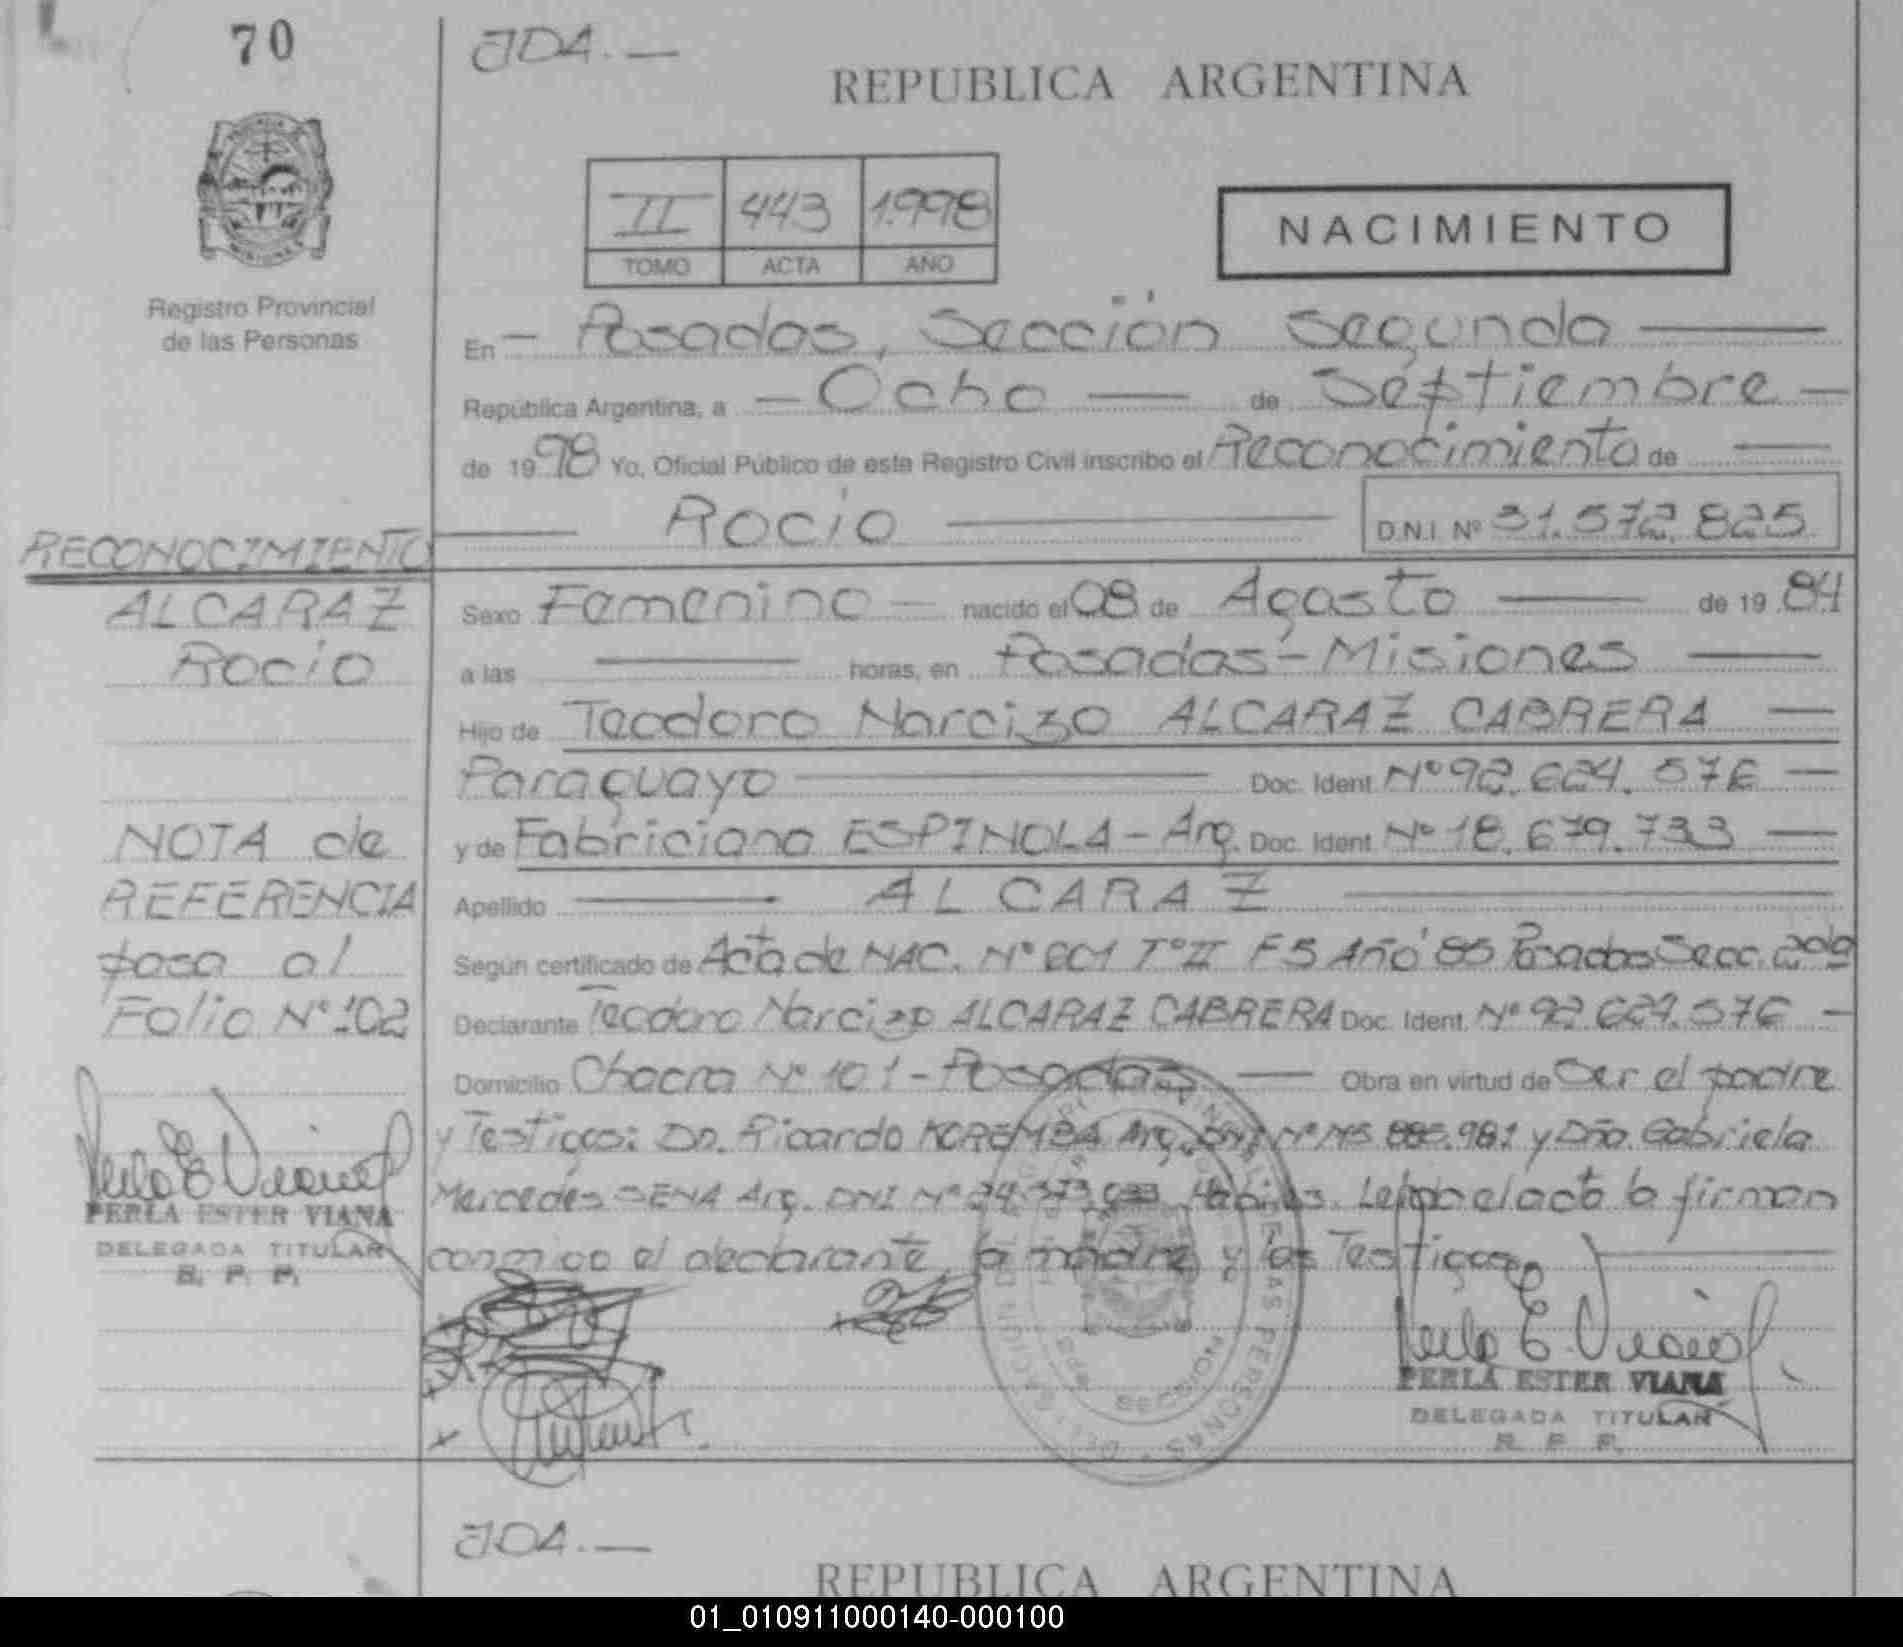 70
JDA.—
REPUBLICA ARGENTINA
II 443 1.998
TOMO ACTA AÑO
NACIMIENTO
Registro Provincial
de las Personas
En — Posadas, Sección Segunda —
República Argentina, a — Ocho — de Septiembre —
de 1998 Yo, Oficial Público de este Registro Civil inscribo el Reconocimiento de —
— Rocío — D.N.I. Nº 31.572.825
RECONOCIMIENTO
ALCARAZ
Rocio
Sexo Femenino — nacido el 08 de Agosto — de 1984
a las — horas, en Posadas - Misiones —
Hijo de Teodoro Narcizo ALCARAZ CABRERA —
Paraguayo — Doc. Ident. Nº 92.624.576 —
y de Fabriciana ESPINOLA - Arg. Doc. Ident. Nº 18.679.733 —
Apellido — ALCARAZ —
NOTA de
REFERENCIA
pasa al
Folio Nº 102
Según certificado de Acta de NAC. Nº 601 Tº II F5 Año 85 Posadas Secc. 2da
Declarante Teodoro Narcizo ALCARAZ CABRERA Doc. Ident. Nº 92.624.576 —
Domicilio Chacra Nº 101 - Posadas — Obra en virtud de Ser el padre
y Testigos: Dn. Ricardo Arg. DNI Nº y Dña. Gabriela
Mercedes SENA Arg. DNI Nº Leída el acta la firman
conmigo el declarante, la madre y los Testigos —
PERLA ESTER VIANA
DELEGADA TITULAR
R. P. P.
PERLA ESTER VIANA
DELEGADA TITULAR
R. P. P.
JDA.—
REPUBLICA ARGENTINA
01_010911000140-000100